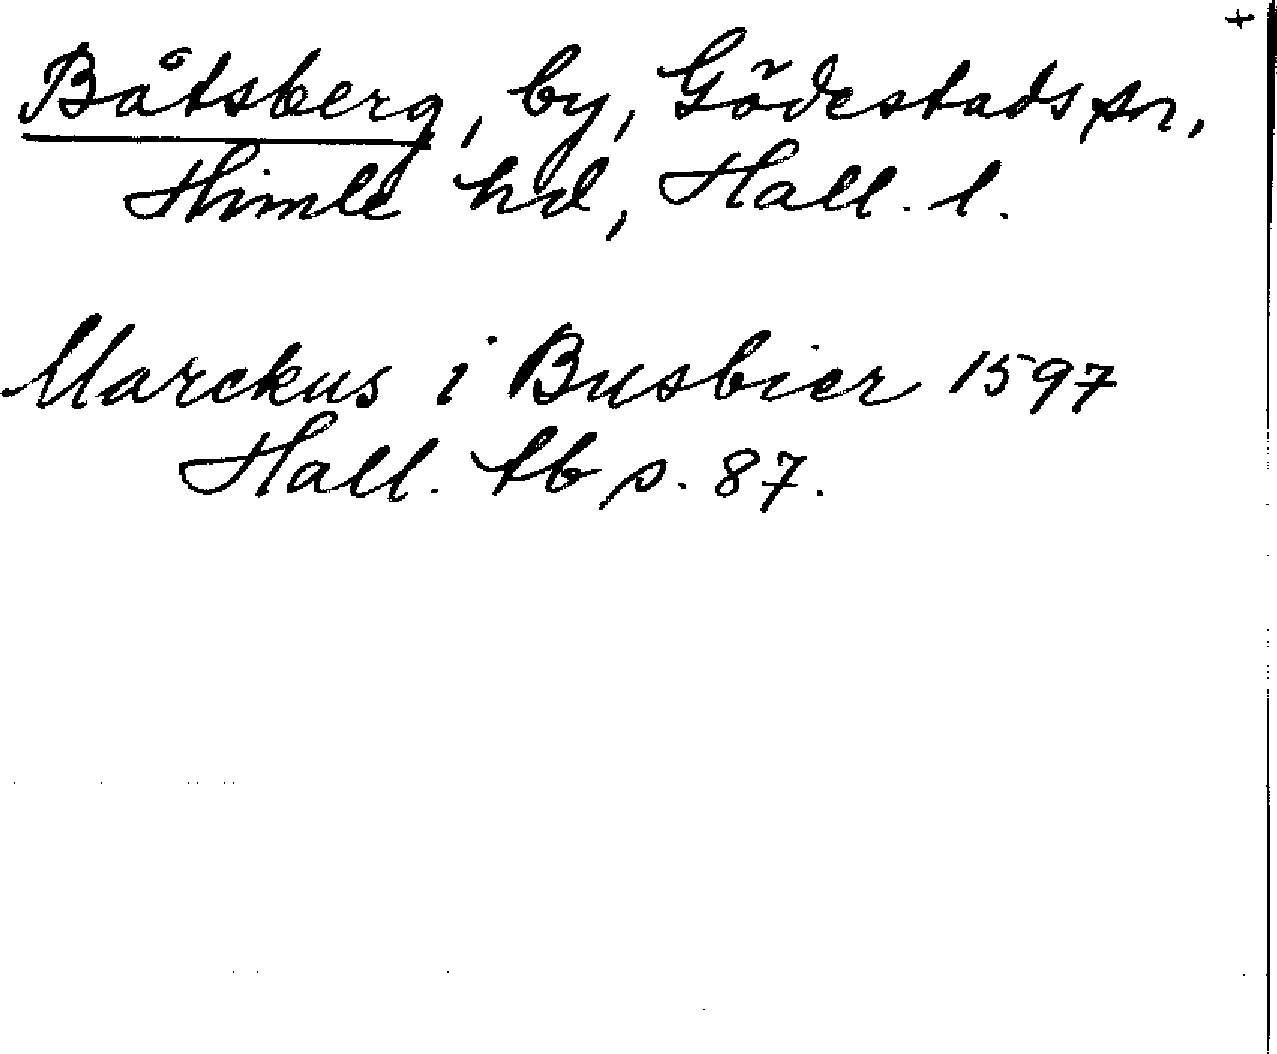 +
Båtsberg, by, Gödestads sn,
Himle hd, Hall. l.
Marckus i Busbier 1597
Hall. tb s. 87.